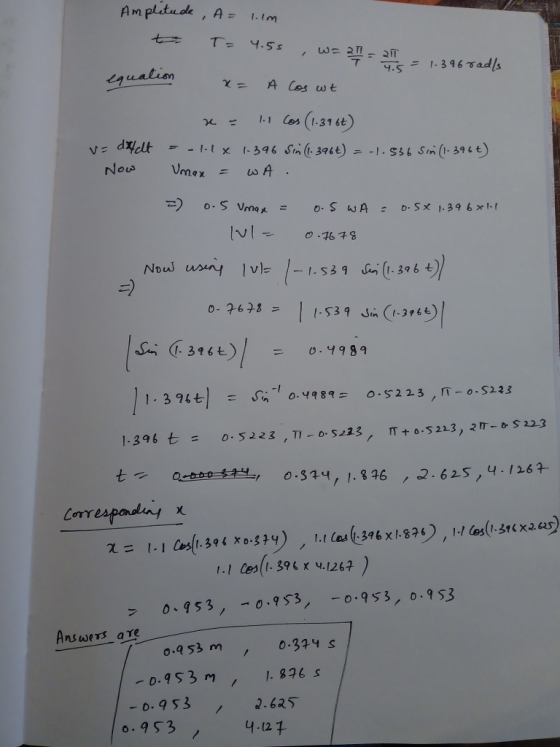 Amplitude, A = 1.1m
T = 4.5s , W = 2π/T = 2π/4.5 = 1.396 rad/s
equation x = A Cos wt
x = 1.1 Cos(1.396t)
V = dx/dt = -1.1 x 1.396 Sin(1.396t) = -1.536 Sin(1.396t)
Now Vmax = wA .
=> 0.5 Vmax = 0.5 WA = 0.5 x 1.396 x 1.1
|V| = 0.7678
Now using |V| = |-1.539 Sin(1.396t)|
=>
0.7678 = |1.539 Sin(1.396t)|
|Sin(1.396t)| = 0.4989
|1.396t| = Sin⁻¹ 0.4989 = 0.5223, π-0.5223
1.396 t = 0.5223, π-0.5223, π+0.5223, 2π-0.5223
t = 0.374, 1.876, 2.625, 4.1267
Corresponding x
x = 1.1 Cos(1.396 x 0.374), 1.1 Cos(1.396 x 1.876), 1.1 Cos(1.396 x 2.625)
1.1 Cos(1.396 x 4.1267)
= 0.953, -0.953, -0.953, 0.953
Answers are
0.953 m , 0.374 s
-0.953 m , 1.876 s
-0.953 , 2.625
0.953 , 4.127